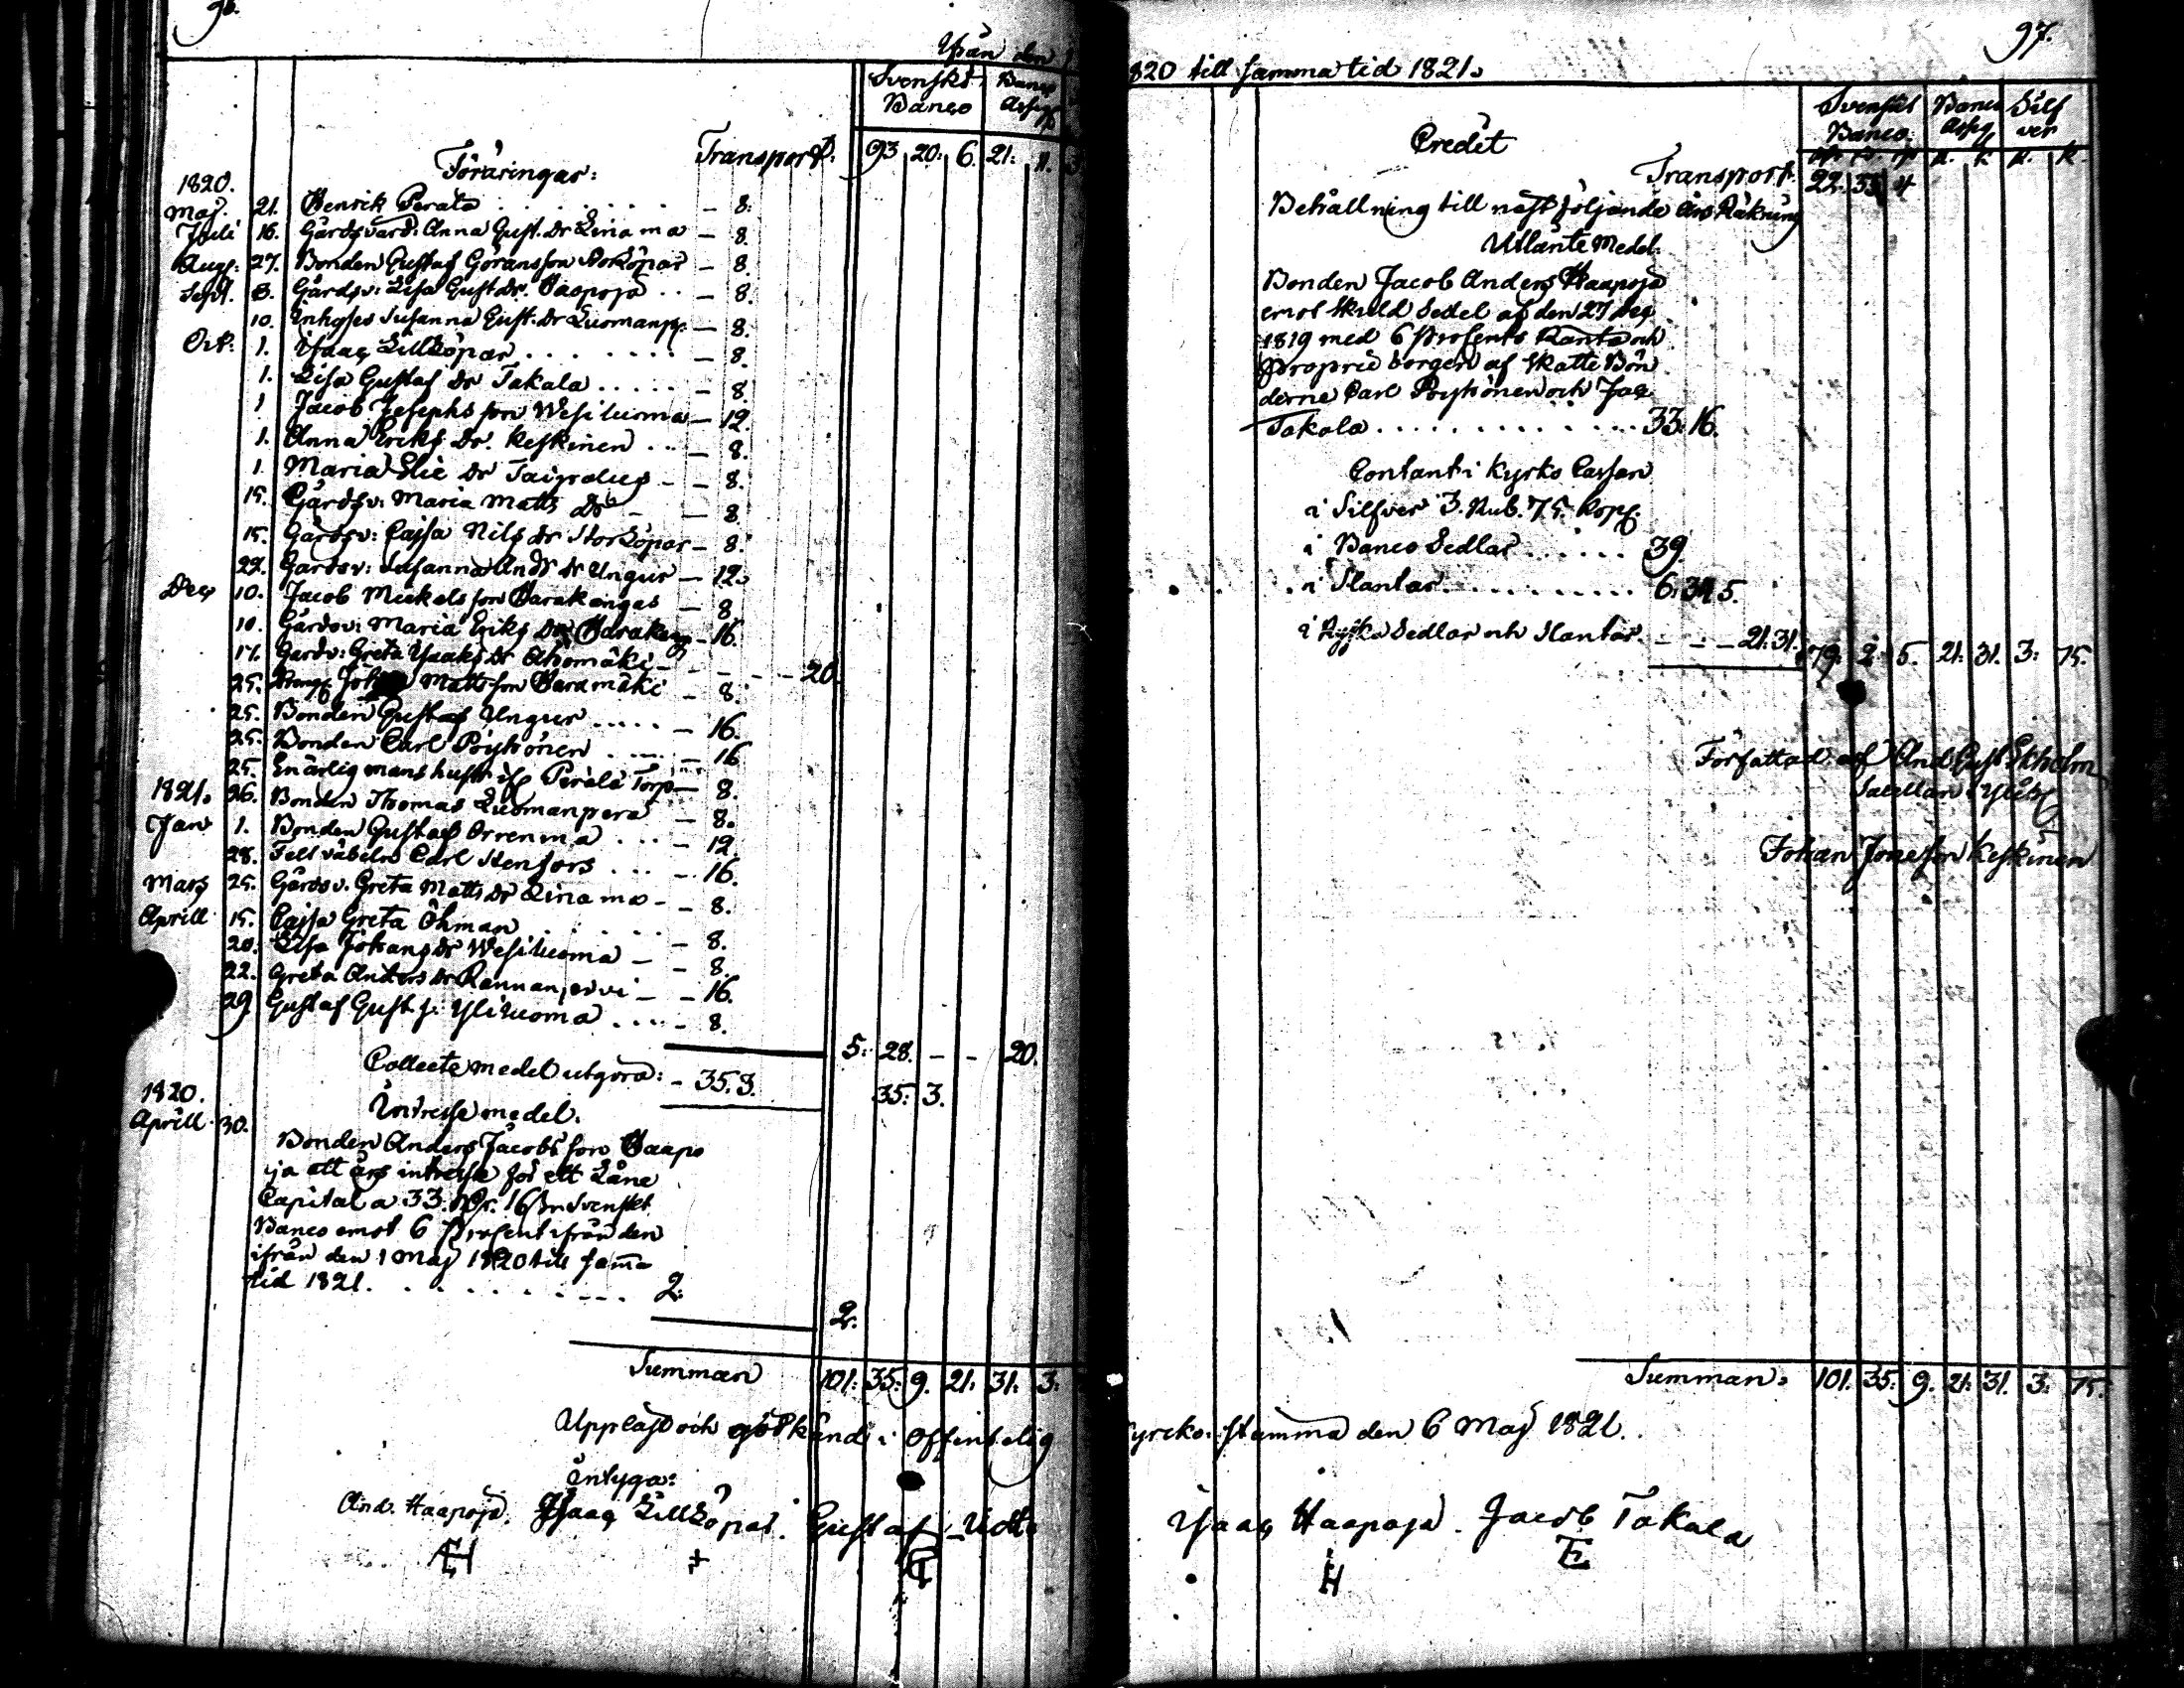 96.
Ifrån den 1
Svenskt Banco
Banco Assign.
Transport: 93 20: 6. 21: 11. 3
Föräringar:
1820.
Maj. 21. Henrik Perala . . . . . . . — 8:
Julii 16. Gårdsvard: Anna Gust. Dr Linama — 8.
Aug: 27. Bonden Gustaf Göransson Storköpar — 8.
Sept. 3. Gårdsv: Lisa Gust Dr. Haapoja . . — 8.
10. Inhyses Susanna Gust. Dr Luomanp. — 8.
Oct: 1. Isaac Lillköpar . . . . . . . — 8.
1. Lisa Gustaf Dr Takala . . . . . — 8.
1 Jacob Josephsson Wesiluoma — 12.
1. Anna Eriks Dr. Keskinen . . . — 8.
1. Maria Elie Dr Taipalus — — 8.
15. Gårdsv: Maria Matts Dr — — 8.
15. Gårdsv: Cajsa Nils Dr Storköpar — 8.
22. Gårdsv: Susanna And: Dr Ungur — 12.
Dec 10. Jacob Mickelsson Harakangas — 8.
10. Gårdsv: Maria Eriks Dr Harakang — 16.
17. Gardv: Greta Isaaks Dr Ahomäki — — — — 20.
25. Dreng Matts son Haramäki — 8.
25. Bonden Gustaf Ungur . . . . . — 16.
25. Bonden Carl Pöyhönen . . . . . — 16
25. En ärlig mans hustr if. Perälä Torp — 8.
1821. 26. Bonden Thomas Luomanpera — 8.
Jan 1. Bonden Gustaf Orrenma . . . — 12.
28. Feltväbeln Carl Stenfors . . . — 16.
Mars 25. Gårdsv. Greta Matts Dr Linama — — 8.
Aprill 15. Cajsa Greta Öhman . . . . . — 8.
20. Lisa Johans Dr Wesiluoma — — 8.
22. Greta Anders Dr Rannanjervi — — 16.
29. Gustaf Gust s: Yliluoma . . . . — 8.
5: 28. — — 20.
Collecte medel utgöra: — 35. 3. 35: 3.
1820. Intresse medel.
Aprill 30.
Bonden Anders Jacobsson Haapo
ja ett års intresse för ett Låne
Capital a 33. Rdr. 16 s. Svenskt
Banco emot 6 Prosent ifrån den
ifrån den 1 Maj 1820 till samma
tid 1821. . . . . . . . . . 2:
2.
Summan 101: 35: 9. 21: 31: 3:
Uppläst och godkänd i Offentelig
intyga:
And. Haapoja. Isaac Lillköpar. Gustaf
AH +
97.
820 till samma tid 1821.
Svenskt Banco.
Banco Assig.
Silfver
Credit
R. K. R. K.
Transport. 22. 35 4
Behållning till näst följande års Räkning
Utlånte Medel.
Bonden Jacob Anders Haapoja
emot Skuld Sedel af den 27 Dec
1819 med 6 Prosents Ränta och
proprie borgen af Skatte Bön
derne Carl Pöyhönen och Jac
Takala . . . . . . . . . . . . . 33: 16.
Contant i Kyrko Cassan
i Silfver 3. Rub. 75. Kop.
i Banco Sedlar . . . . . . 39.
i Slantar . . . . . . . . . . 6: 34. 5.
i Ryska Sedlar och Slantar. — — — 21: 31. 79: 2: 5. 21: 31. 3: 75.
Författad af And Gust Ekholm
Sacellan i Ylis
Johan Jonesson Keskinen
Summan: 101. 35. 9. 21. 31. 3: 75.
Kyrcko: stämma den 6 Maj 1821.
Isaac Haapoja. Jacob Takala
IH